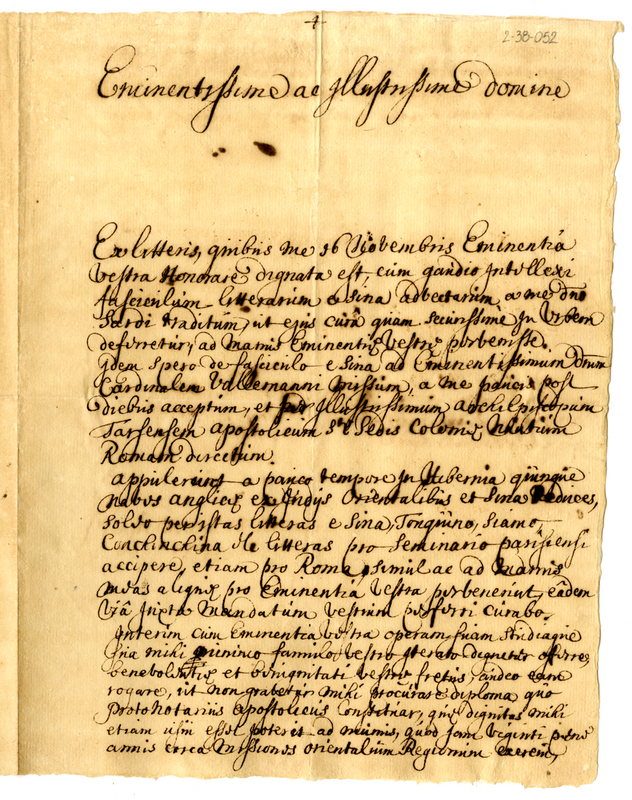 4
2-38-052
Eminentissime ac Illustrissime domine
Ex litteris, quibus me 16 Novembris Eminentiá
vestra Honorare dignata est, cum gaudio Intellexi
fasciculum litterarum e sina advectarum, a me dno
Sardi traditum, ut ejus curâ quam securissime In Urbem
deferretur, ad manus Eminentiæ Vestræ pervenisse.
Idem spero de fasciculo e Sina ad Eminentissimum Dnum
Cardinalem Vallemanni missum, a me paucis post
diebus acceptum, et per Illustrissimum archiEpiscopum
Tarsensem apostolicum Stæ Sedis Coloniæ Nuntium
Romam directum.
appulerunt a pauco tempore In Hibernia quinque
naves anglicæ ex Indijs Orientalibus et Sina Reduces,
soleo per istas litteras e Sina, Tonquino, Siamo,
Conchinchina &c litteras pro Seminario parisiensi
accipere, etiam pro Roma, simul ac ad manus
meas aliquæ pro Eminentiâ Vestra pervenerint, eâdem
viâ Juxta mandatum vestrum perferri curabo.
Interim cum Eminentia vestra operam suam studiaque
sua mihi minimo famulo vestro Iterato dignetur offerre,
benevolentiæ et benignitati vestræ fretus, audeo eam
rogare, ut non gravetur mihi procurare diploma quo
Protonotarius apostolicus Constituar, quæ dignitas mihi
etiam usui esse poterit ad munus, quod jam viginti pene
annis circa missiones orientalium Regionum exerceo,